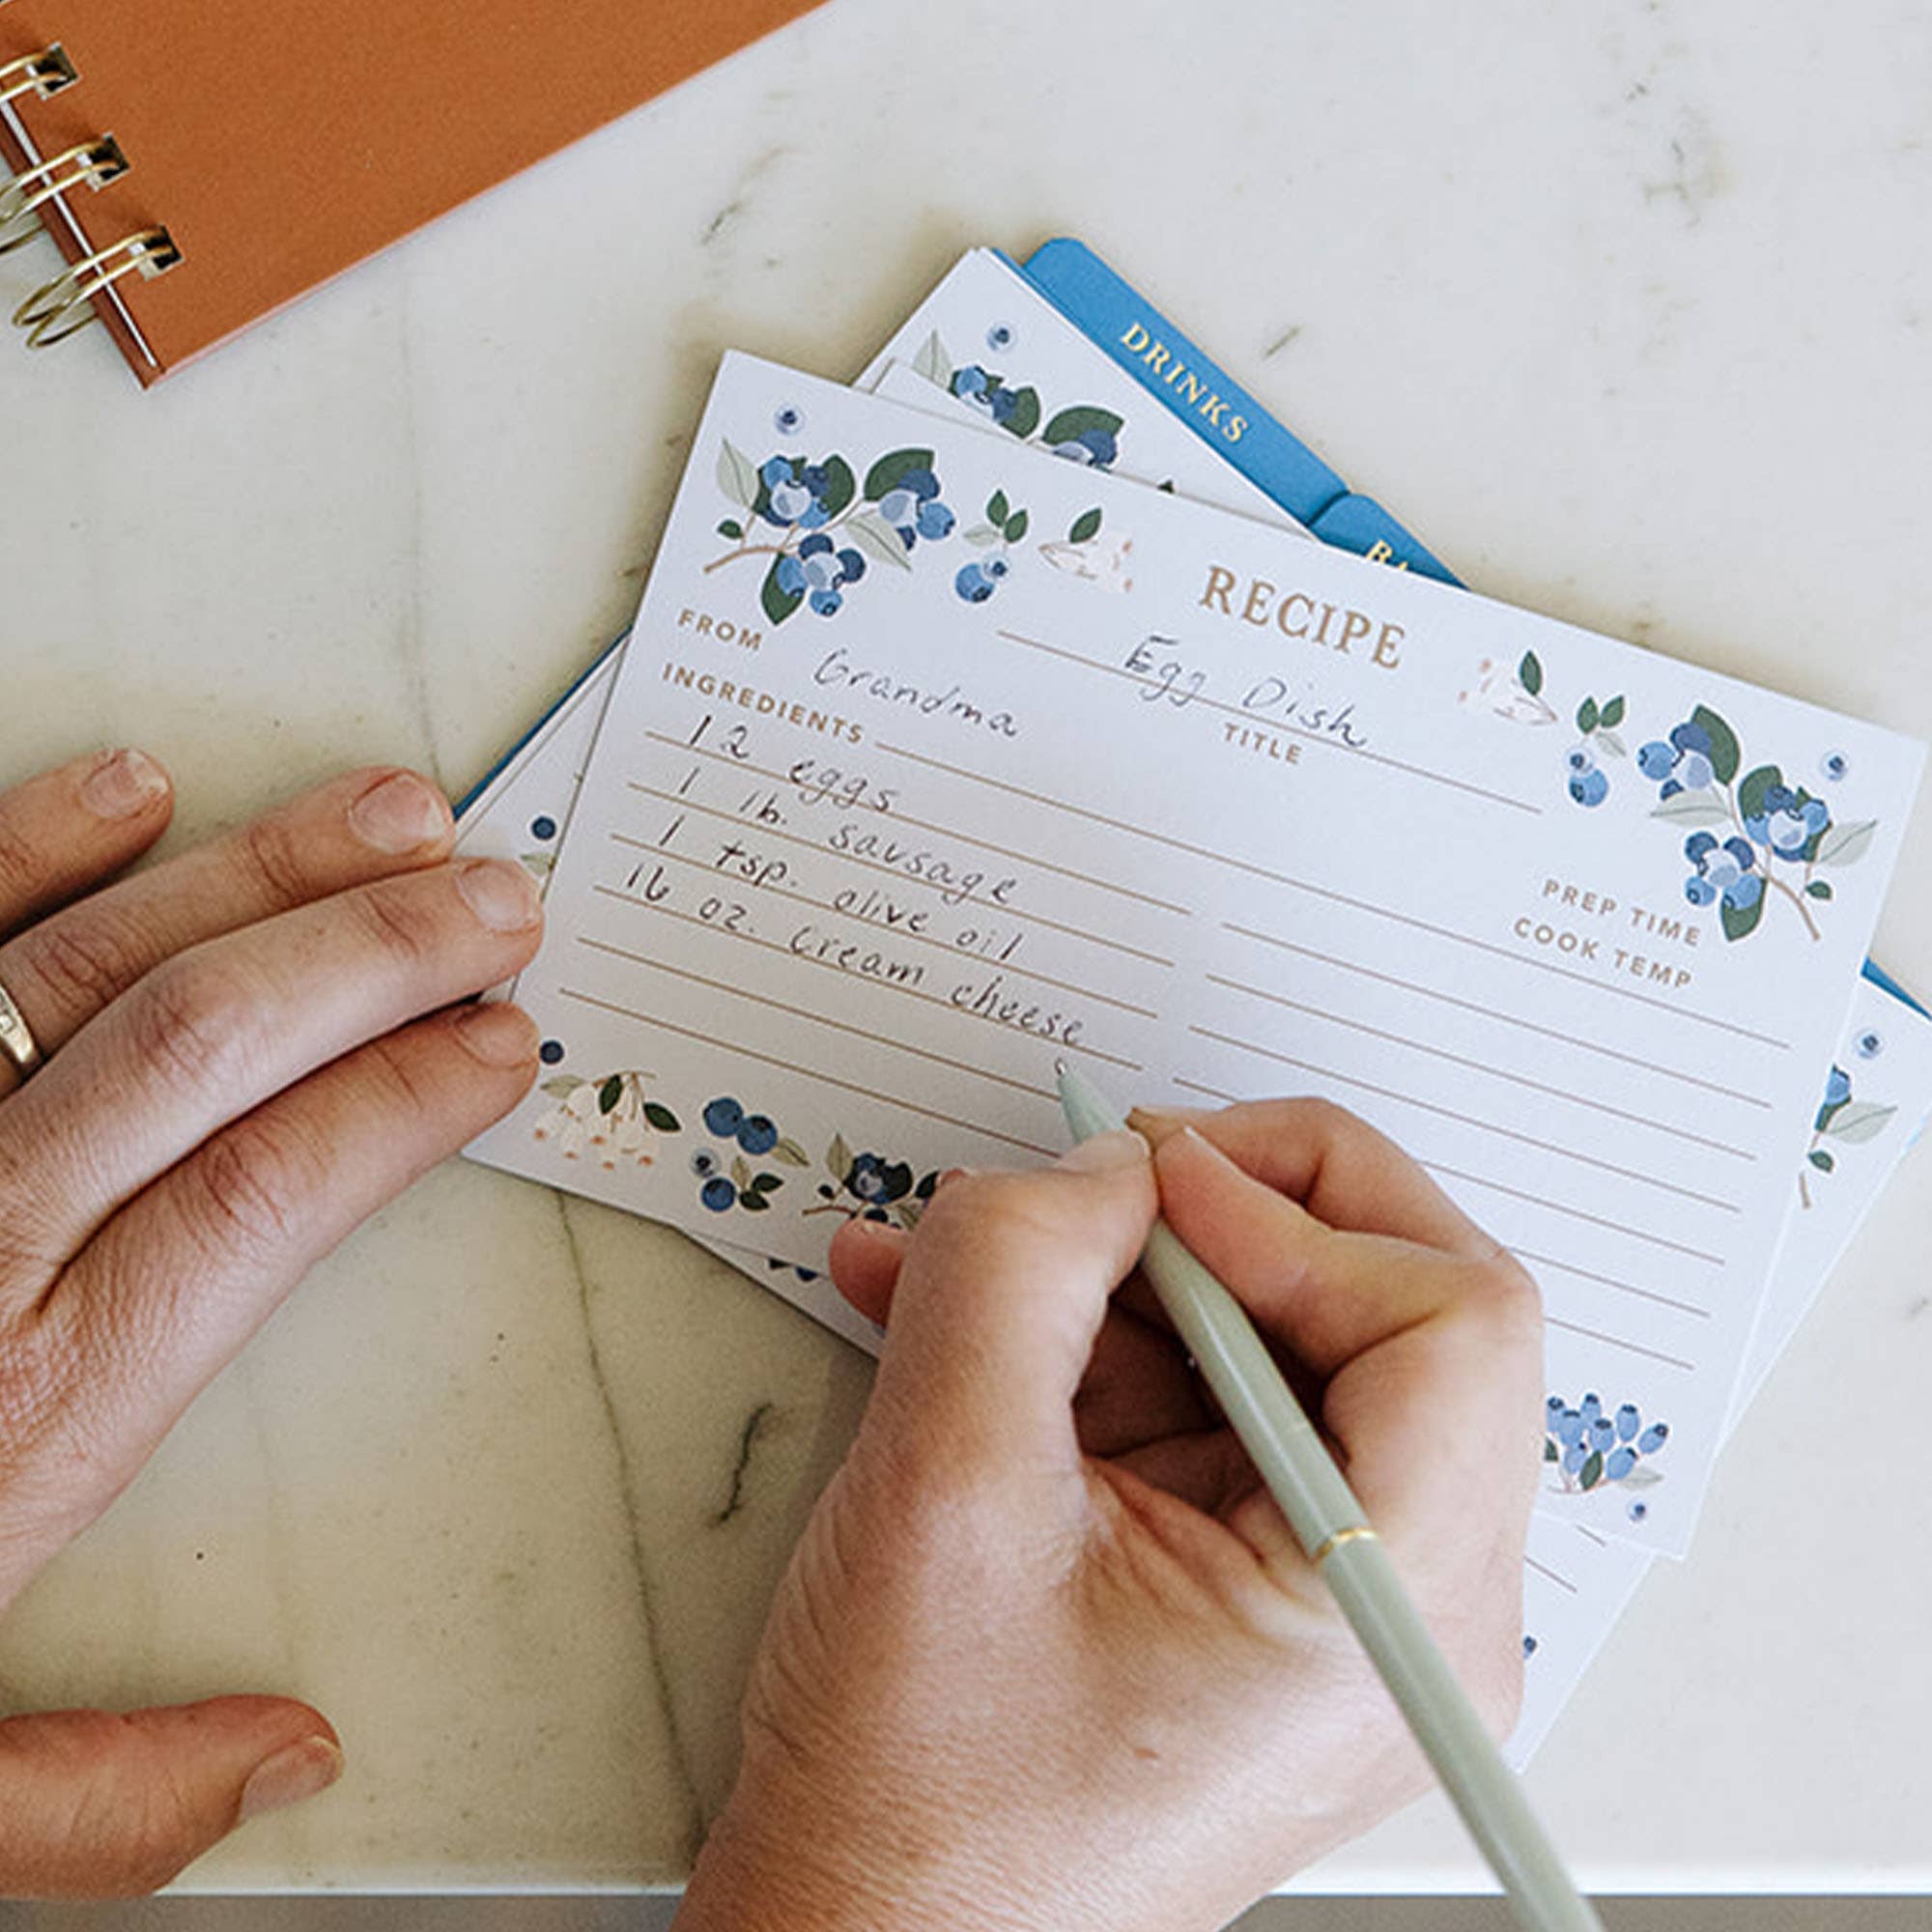 DRINKS
RECIPE
Egg Dish
TITLE
FROM Grandma
INGREDIENTS
PREP TIME
COOK TEMP
12 eggs
1 lb. sausage
1 tsp. olive oil
16 oz. cream cheese